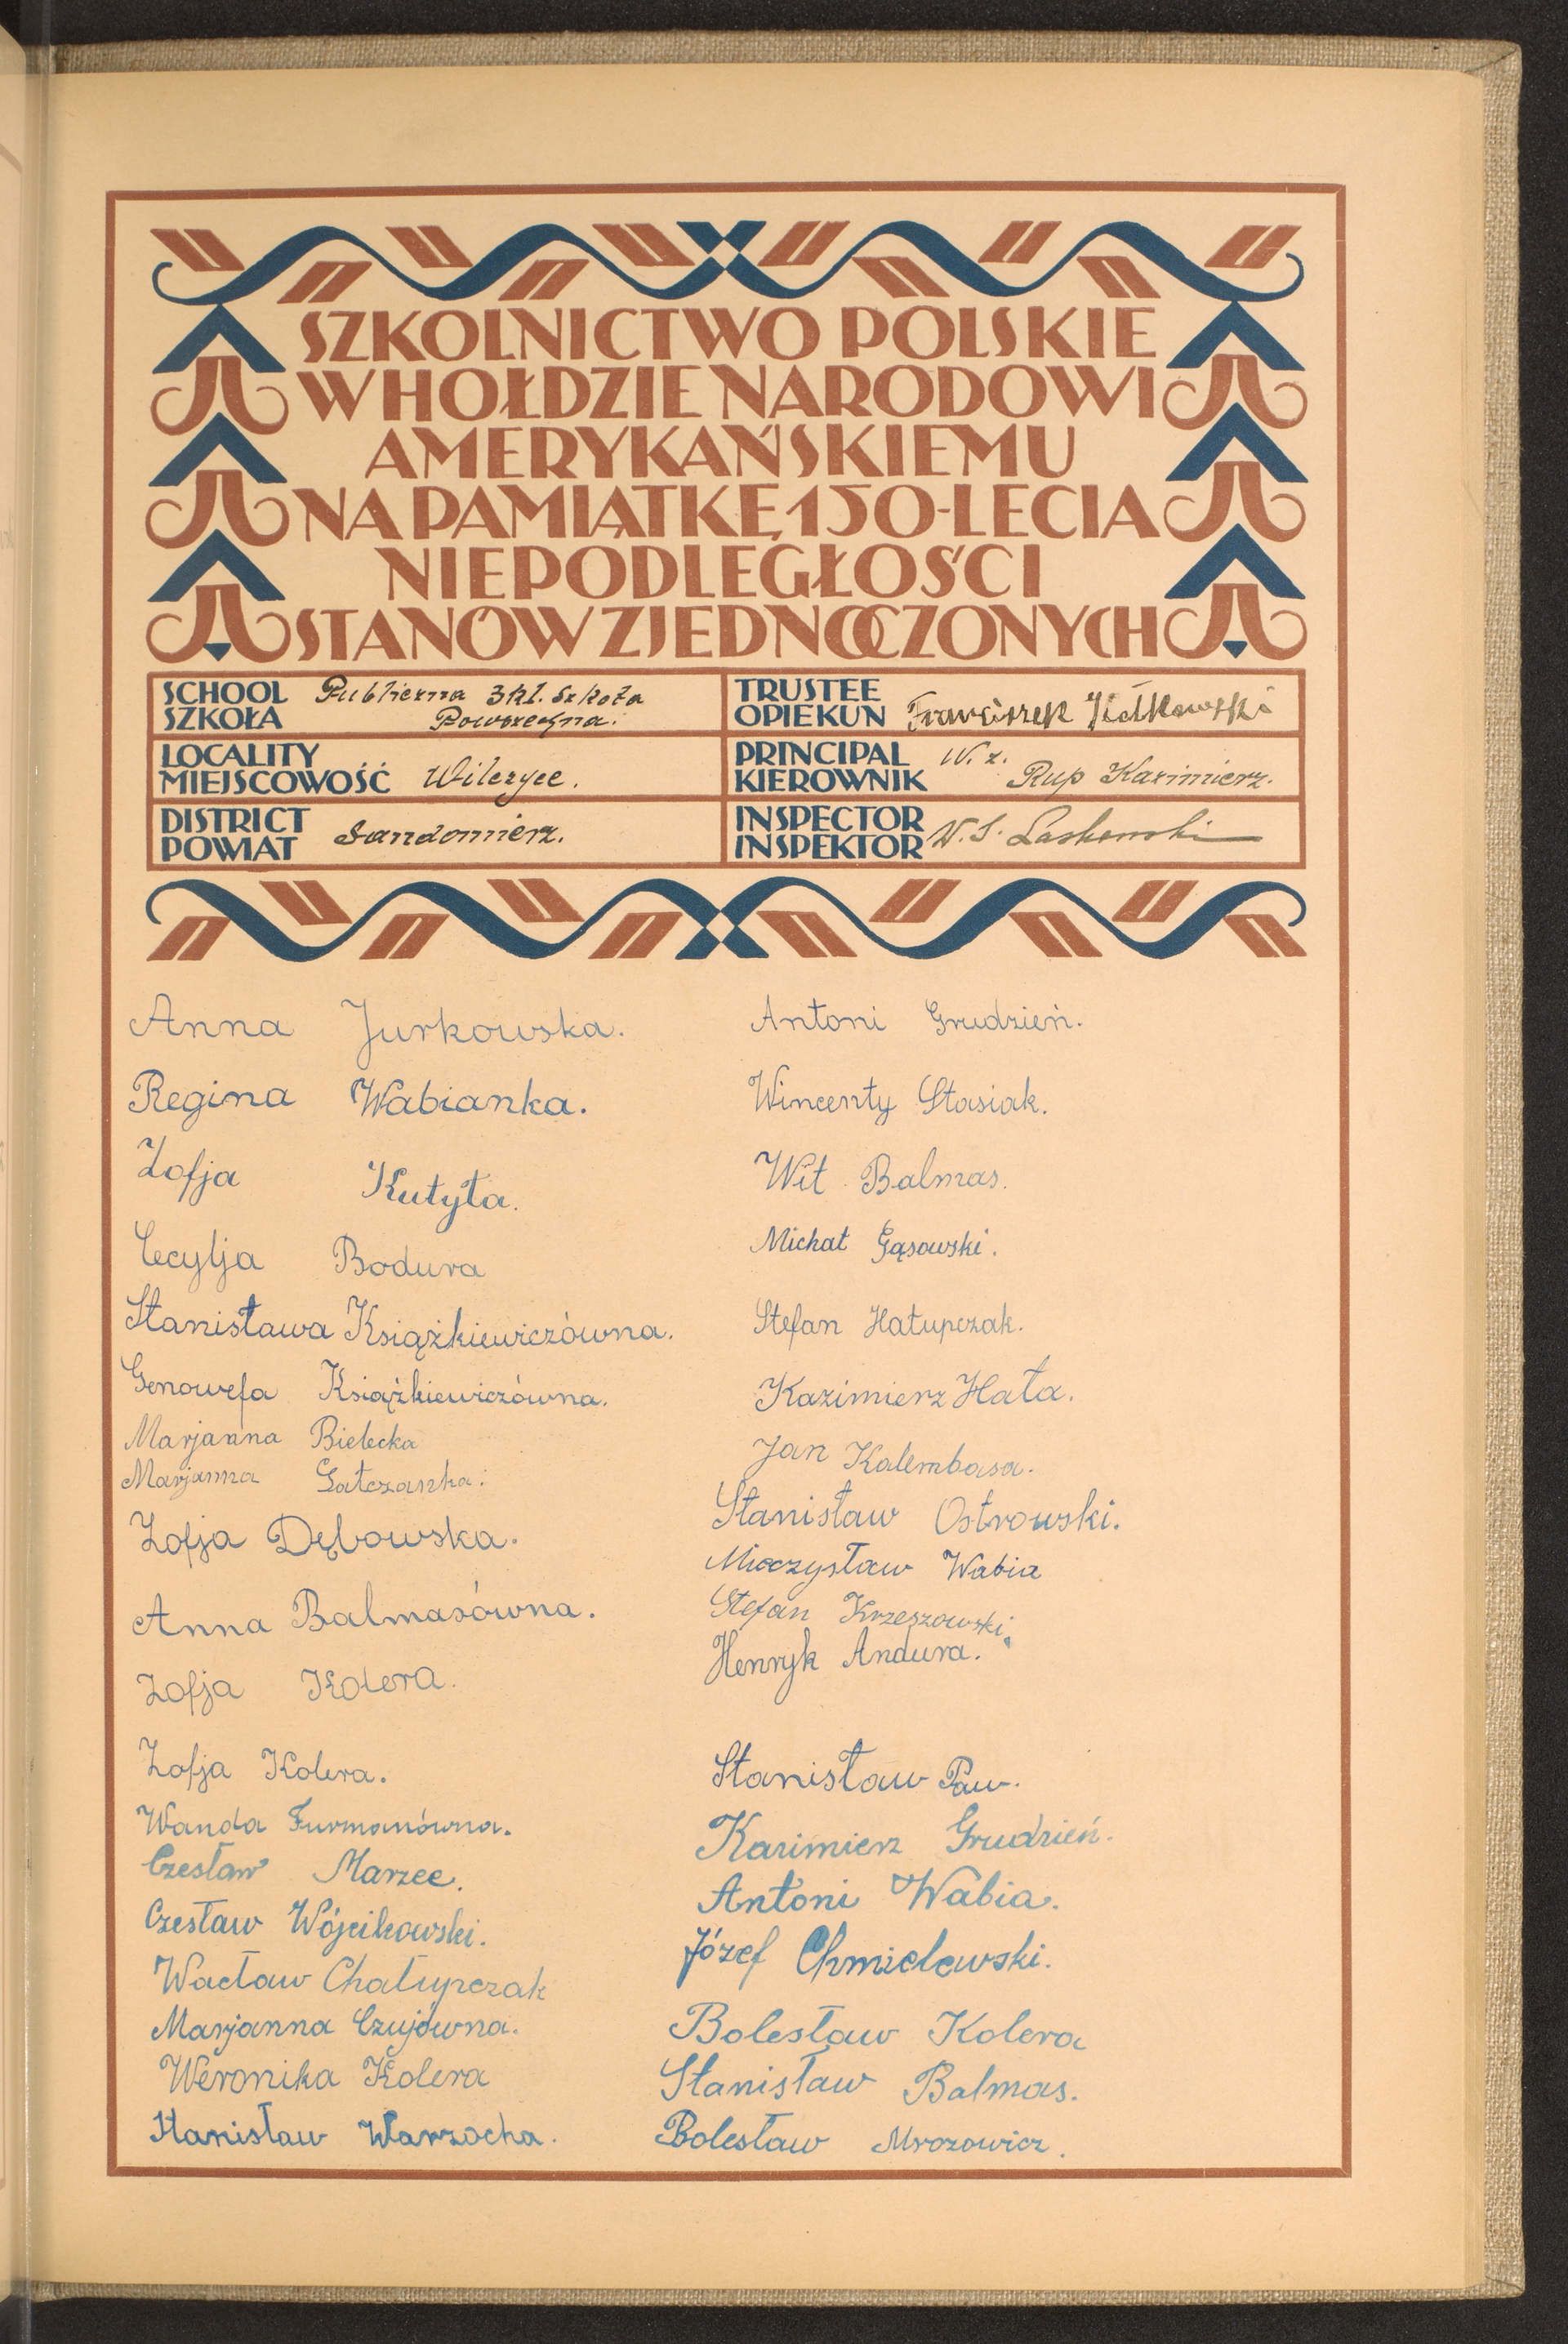 SZKOLNICTWO POLSKIE
W HOŁDZIE NARODOWI
AMERYKAŃSKIEMU
NA PAMIĄTKĘ 150-LECIA
NIEPODLEGŁOŚCI
STANÓW ZJEDNOCZONYCH
SCHOOL
SZKOŁA
Publiczna 3 kl. Szkoła
Powszechna.
TRUSTEE
OPIEKUN
Franciszek
LOCALITY
MIEJSCOWOŚĆ
Wilczyce.
PRINCIPAL
KIEROWNIK
W. z.
Rup Kazimierz.
DISTRICT
POWIAT
Sandomierz.
INSPECTOR
INSPEKTOR
W. S. Laskowski
Anna Jurkowska.
Regina Wabianka.
Zofja Kutyła.
Cecylja Bodura
Stanisława Książkiewiczówna.
Genowefa Książkiewiczówna.
Marjanna Bielecka
Marjanna Gałczanka.
Zofja Dębowska.
Anna Balmasówna.
Zofja Kolera.
Zofja Kolera.
Wanda Furmanówna.
Czesław Marzec.
Czesław Wójcikowski.
Wacław Chałupczak
Marjanna Czujówna.
Weronika Kolera
Stanisław Warzocha.
Antoni Grudzień.
Wincenty Stasiak.
Wit Balmas.
Michał Gąsowski.
Stefan Hałupczak.
Kazimierz Hała.
Jan Kalembasa.
Stanisław Ostrowski.
Mieczysław Wabia
Stefan Krzeszowski.
Henryk Andura.
Stanisław Paw.
Kazimierz Grudzień.
Antoni Wabia.
Józef Chmielewski.
Bolesław Kolera
Stanisław Balmas.
Bolesław Mrozowicz.